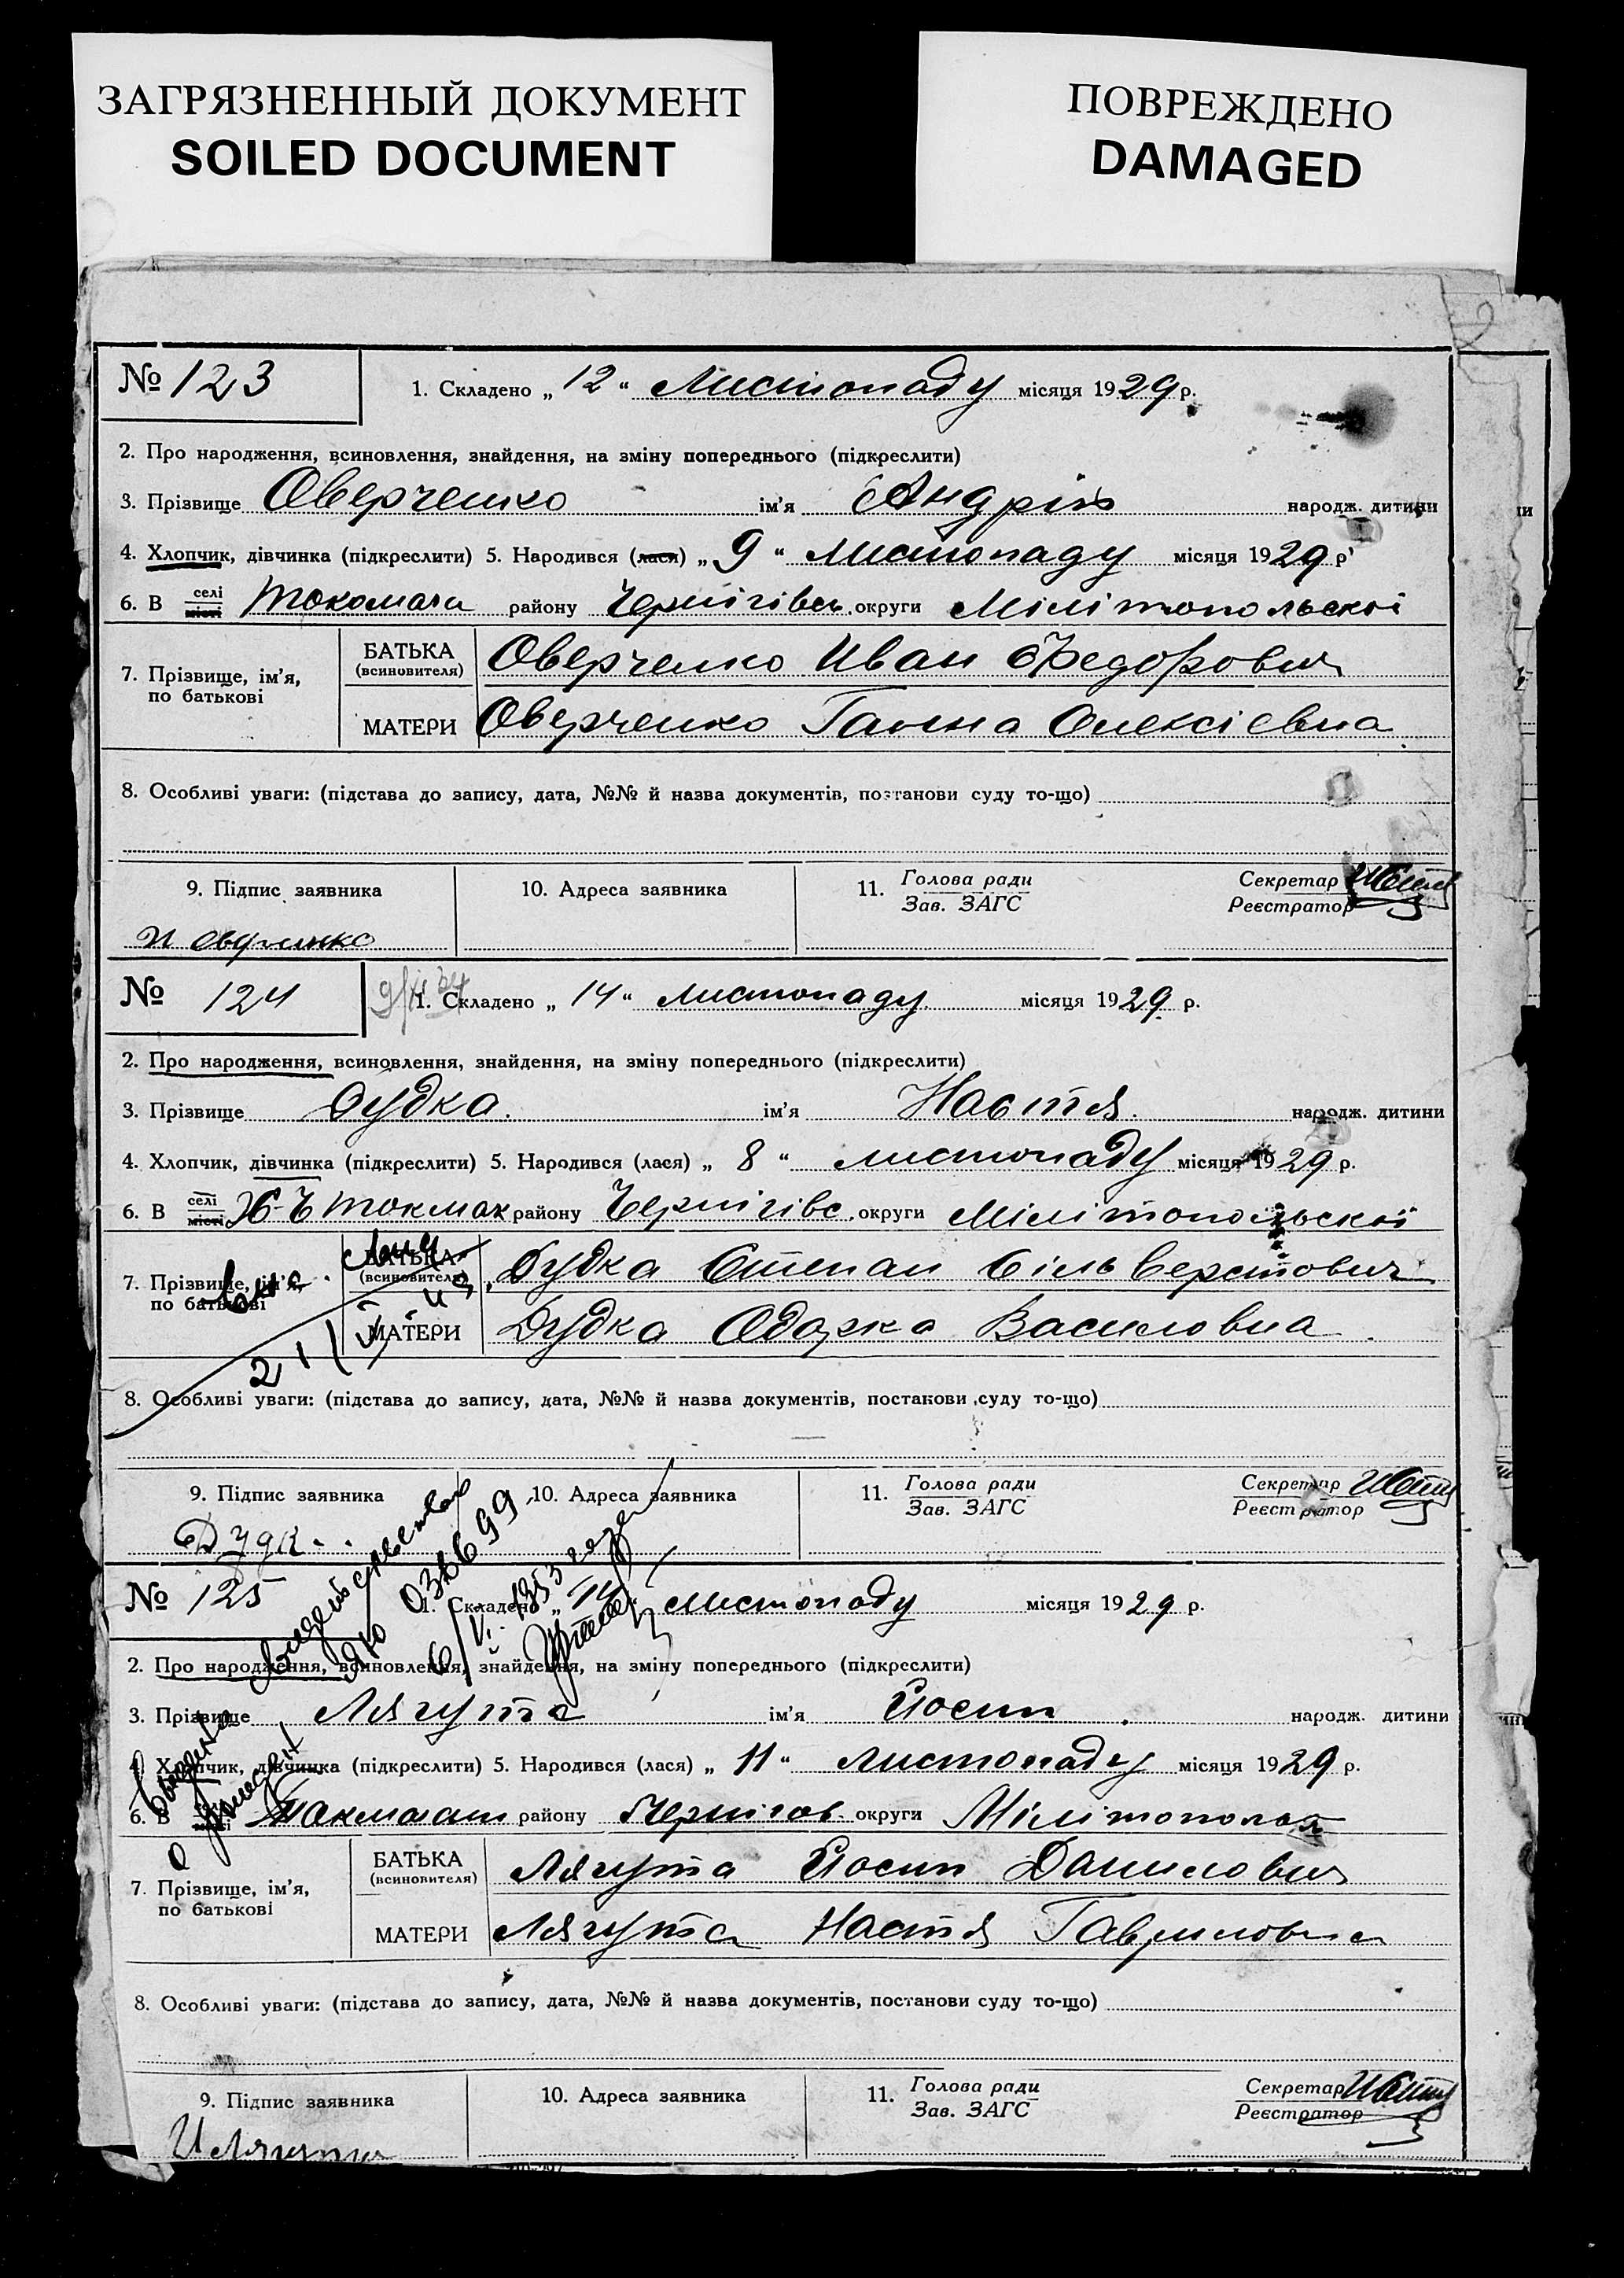 ЗАГРЯЗНЕННЫЙ ДОКУМЕНТ
SOILED DOCUMENT
ПОВРЕЖДЕНО
DAMAGED
№ 123
1. Складено „ 12 “ Листопаду місяця 1929 р.
2. Про народження, всиновлення, знайдення, на зміну попереднього (підкреслити)
3. Прізвище Оверченко ім'я Андрій народж. дитини
4. Хлопчик, дівчинка (підкреслити) 5. Народився (лася) „ 9 “ Листопаду місяця 1929 р
6. В селі місті району Чернігівськ. округи Мілітопольскоі
7. Прізвище, ім'я, по батькові
БАТЬКА (всиновителя) Оверченко Иван Федорович
МАТЕРИ Оверченко Ганна Олексієвна
8. Особливі уваги: (підстава до запису, дата, №№ й назва документів, постанови суду то-що)
9. Підпис заявника
10. Адреса заявника
11. Голова ради Зав. ЗАГС
Секретар Реєстратор
№ 124
1. Складено „ 14 “ листопаду місяця 1929 р.
2. Про народження, всиновлення, знайдення, на зміну попереднього (підкреслити)
3. Прізвище Дудка ім'я Настя народж. дитини
4. Хлопчик, дівчинка (підкреслити) 5. Народився (лася) „ 8 “ листопаду місяця 1929 р.
6. В селі місті токмак району Чернігівс. округи Мілітопольскоі
7. Прізвище, ім'я, по батькові
БАТЬКА (всиновителя) Дудка Степан Сільверстович
МАТЕРИ Дудка Одарка Василовна
8. Особливі уваги: (підстава до запису, дата, №№ й назва документів, постанови суду то-що)
9. Підпис заявника
10. Адреса заявника
11. Голова ради Зав. ЗАГС
Секретар Реєстратор
№ 125
1. Складено „ 14 “ листопаду місяця 1929 р.
2. Про народження, всиновлення, знайдення, на зміну попереднього (підкреслити)
3. Прізвище Лягута ім'я Йосип народж. дитини
4. Хлопчик, дівчинка (підкреслити) 5. Народився (лася) „ 11 “ листопаду місяця 1929 р.
6. В району Чернігов. округи
7. Прізвище, ім'я, по батькові
БАТЬКА (всиновителя) Лягута Йосип Данилович
МАТЕРИ Лягута Настя Гавриловна
8. Особливі уваги: (підстава до запису, дата, №№ й назва документів, постанови суду то-що)
9. Підпис заявника
10. Адреса заявника
11. Голова ради Зав. ЗАГС
Секретар Реєстратор